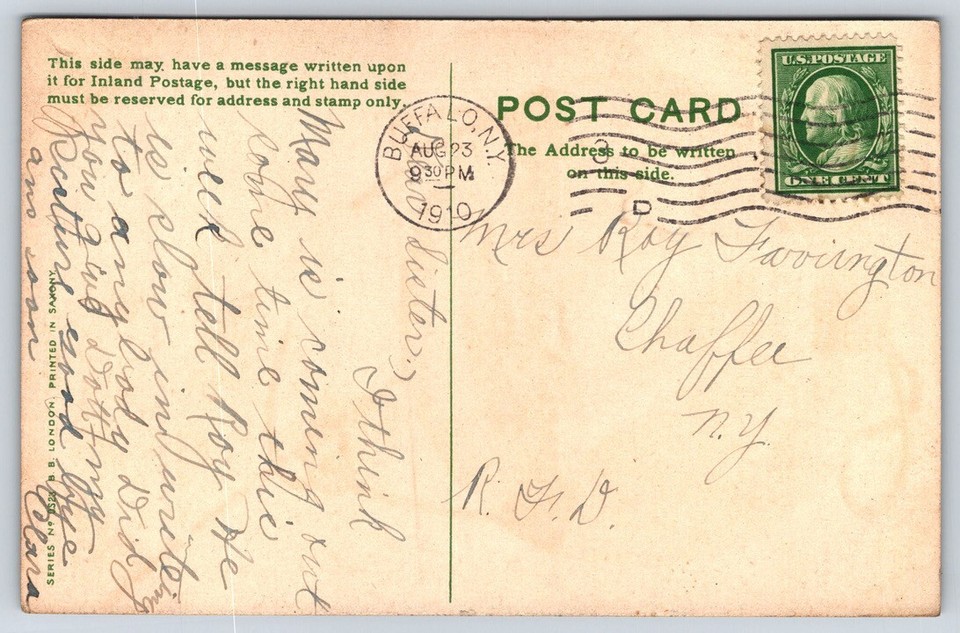 This side may have a message written upon
it for Inland Postage, but the right hand side
must be reserved for address and stamp only.
POST CARD
The Address to be written
on this side.
BUFFALO, N.Y.
AUG 23
9 30 PM
1910
D
U.S. POSTAGE
ONE CENT
Mrs Roy Farrington
Chaffee
N.Y.
R. F. D.
Dear Sister.
I think
May is coming out
some time this
week tell Roy he
is slow in writeing
to anybody Did
you find Dotty
picture good bye
ans soon Clara
SERIES No B. B. LONDON. PRINTED IN SAXONY